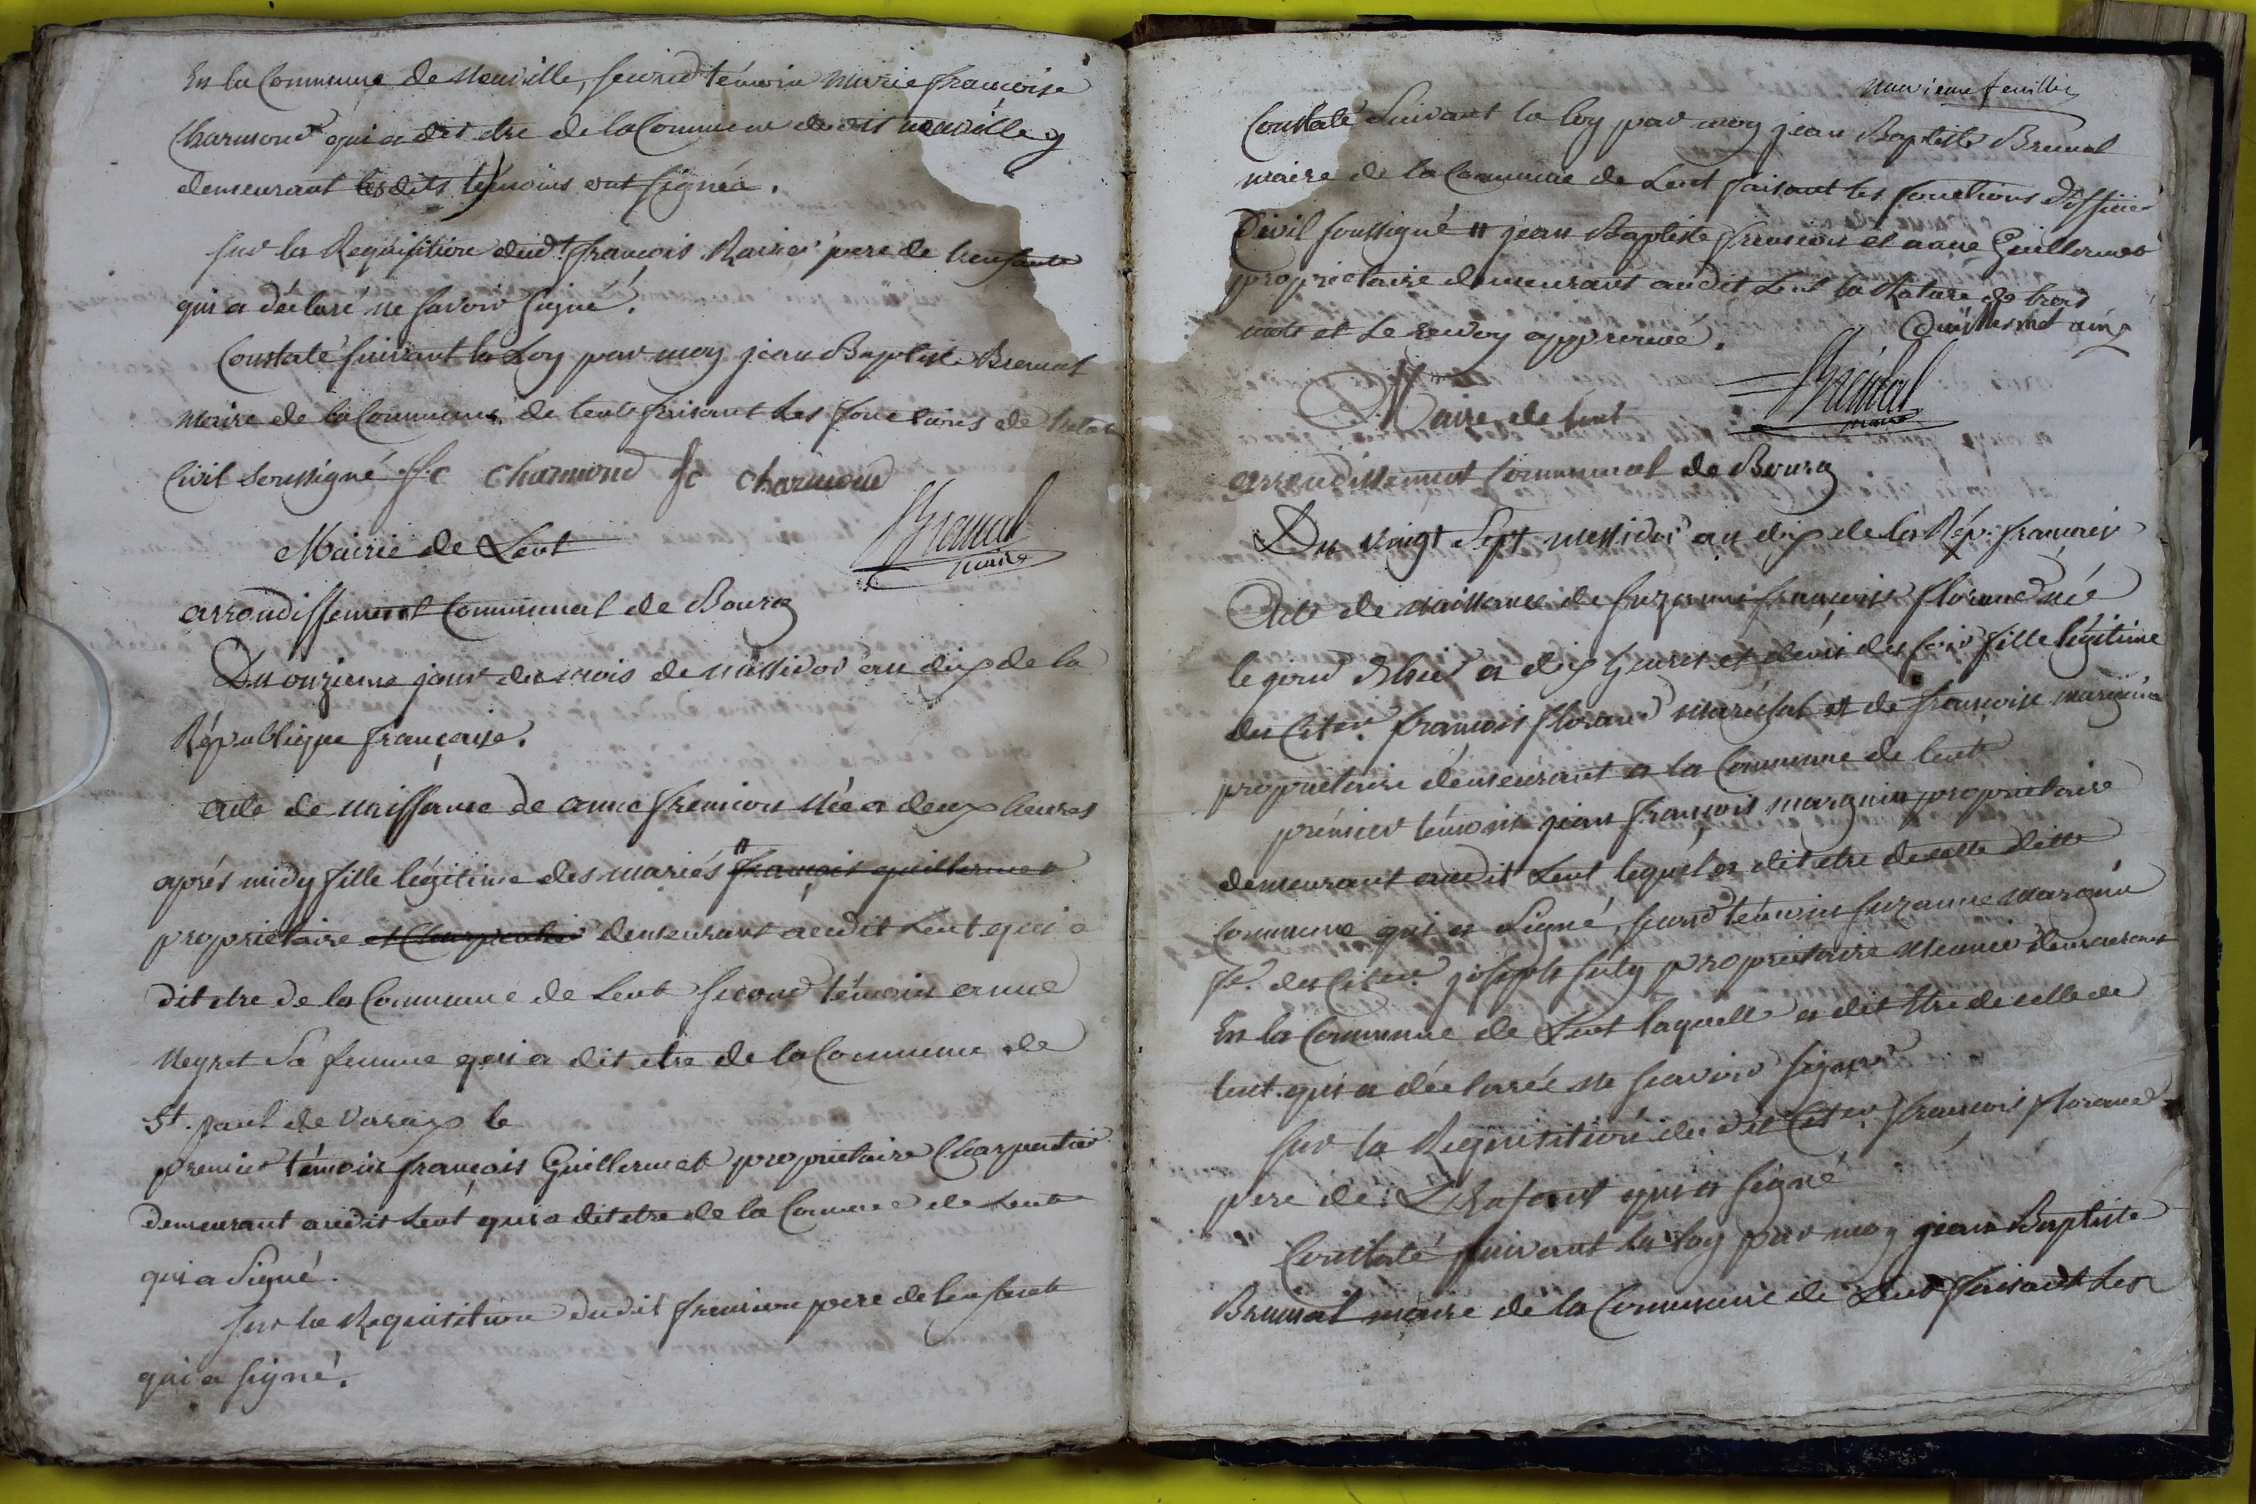 En la Commune de Neuville, second témoin Marie françoise
Charmond qui a dit etre de la Commune dudit neuville y
demeurant lesdits témoins ont signéa.
Sur la Requisition dudt françois pere de lenfant
qui a déclaré ne savoir signé.
Constaté suivant la Loy par moy jean Baptiste Bremal
Maire de la Commune de Lent faisant les fonctions de letat
Civil soussigné fc Charmond fc Charmond
Mairie de Lent
Bremal
maire
arrondissement Communal de Bourg
Du onzieme jour du mois de messidor an dix de la
République française.
acte de naissance de anne fremion Née a deux heures
aprés midy fille légitime des mariés # françois guillermet
propriétaire et Charpentier demeurant audit Lent qui a
dit etre de la Commune de Lent second témoin anne
Neyret Sa femme qui a dit etre de la Commune de
St. paul de Varax le
premier témoin françois Guillermet propriétaire Charpentier
demeurant audit Lent qui a dit etre de la Commune de Lent
qui a Signé.
Sur la Requisition dudit fremion pere de lenfant
qui a signé.
neuvieme feuillet
Constaté Suivant la loy par moy jean Baptiste Bremal
maire de la Commune de Lent faisant les fonctions d'officier
Civil soussigné # jean Baptiste fremion et anne Guillermet
propriétaire demeurant audit Lent la Rature de trois
mots et le renvoy approuvé.
Guillermet ainé
Bremal
maire
Mairie de Lent
arrondissement Communal de Bourg
Du vingt Sept messidor an dix de la Rép. française
Acte de naissance de Suzanne françoise florand née
le jour d'hier a dix heures et demis du soir fille légitime
du Citen. françois florand maréchal et de françoise marguin
propriétaire demeurant a la Commune de Lent
prémier témoin jean françois marguin propriétaire
demeurant audit Lent lequel a dit etre de celle ditte
Commune qui a Signé, second témoin suzanne marguin
fe. du Citen. joseph July propriétaire Meunier demeurant
En la Commune de Lent laquelle a dit Etre de celle de
Lent. qui a déclarée ne scavoir signer
Sur la Requisition du dit Citen. françois florand
pere de L'Enfant qui a signé
Constaté suivant la loy par moy jean Baptiste
Bremal maire de la Commune de Lent faisant Les